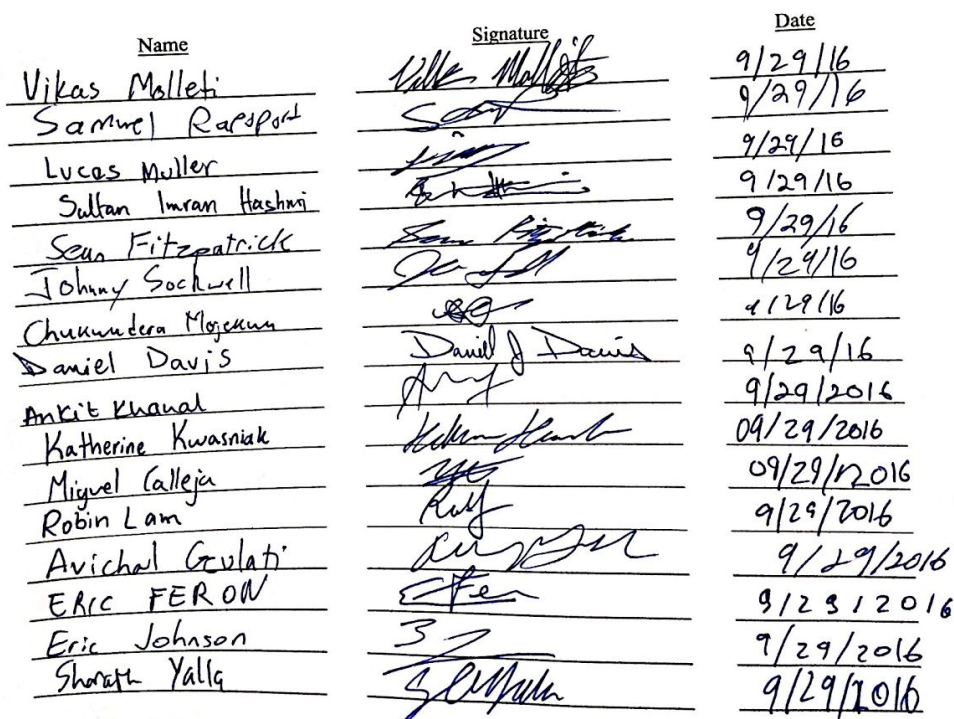 Name Signature Date
Vikas Molleti Vikas Molleti 9/29/16
Samuel Rapoport 9/29/16
Lucas Muller 9/29/16
Sultan Imran Hashmi 9/29/16
Sean Fitzpatrick Sean Fitzpatrick 9/29/16
Johnny Sockwell 9/29/16
Chukwudera Mojekwu 9/29/16
Daniel Davis Daniel J Davis 9/29/16
Ankit Khanal 9/29/2016
Katherine Kwasniak 09/29/2016
Miguel Calleja 09/29/2016
Robin Lam 9/29/2016
Avichal Gulati 9/29/2016
ERIC FERON EFeron 9/29/2016
Eric Johnson 9/29/2016
Sharath Yalla 9/29/2016